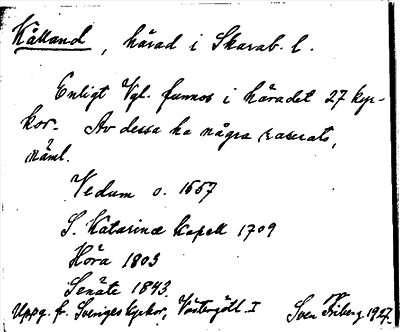 Kålland, härad i Skarab. l.
Enligt Vgl. funnos i häradet 27 kyr-
kor. Av dessa ha några raserats,
näml.
Vedum o. 1667
S. Katarinæ Kapell 1709
Höra 1803
Senäte 1843.
Uppg. fr. Sveriges kyrkor, Västergötl. I Sven Friberg 1927.